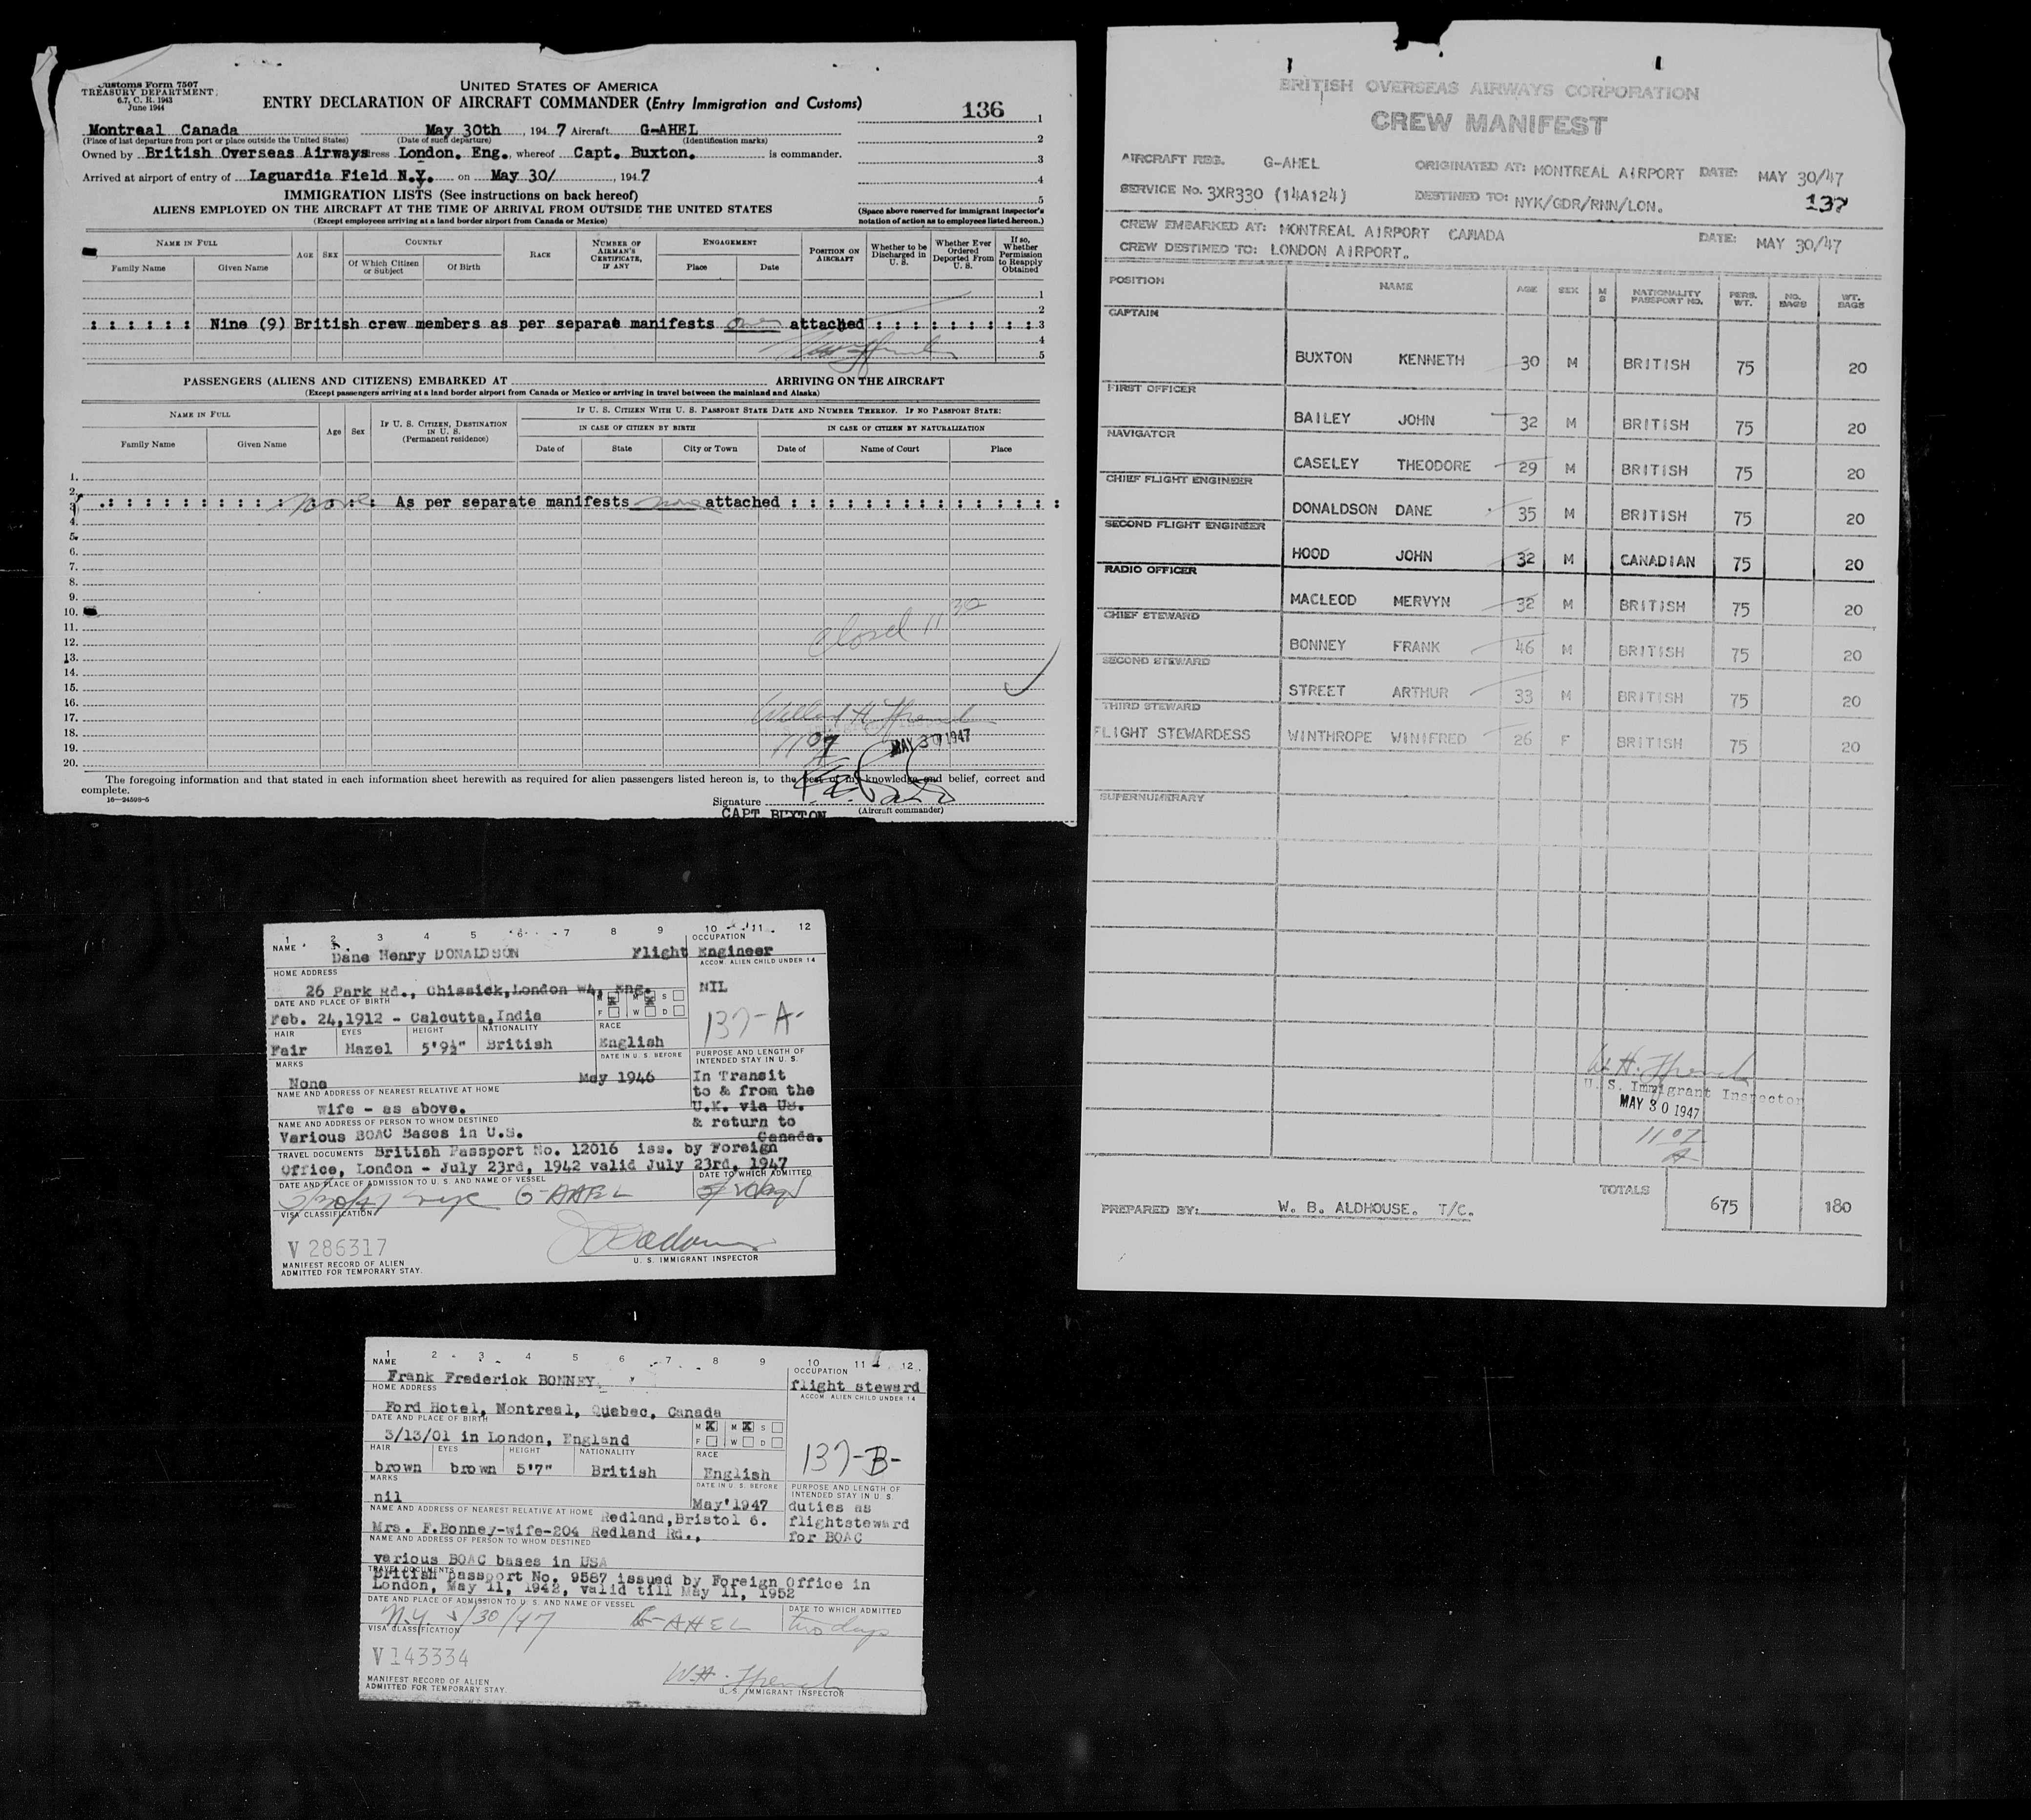 Customs Form 7507
TREASURY DEPARTMENT
6.7, C. R. 1943
June 1944
UNITED STATES OF AMERICA
ENTRY DECLARATION OF AIRCRAFT COMMANDER (Entry Immigration and Customs)
136
Montreal Canada May 30th, 1947 Aircraft G-AHEL
(Place of last departure from port or place outside the United States) (Date of such departure) (Identification marks)
Owned by British Overseas Airways London. Eng., whereof Capt. Buxton. is commander.
Arrived at airport of entry of Laguardia Field N.Y. on May 30/, 1947
1
2
3
4
5
IMMIGRATION LISTS (See instructions on back hereof)
ALIENS EMPLOYED ON THE AIRCRAFT AT THE TIME OF ARRIVAL FROM OUTSIDE THE UNITED STATES
(Except employees arriving at a land border airport from Canada or Mexico)
(Space above reserved for immigrant inspector's notation of action as to employees listed hereon.)
NAME IN FULL
Family Name Given Name
AGE SEX
COUNTRY
Of Which Citizen or Subject Of Birth
RACE
NUMBER OF AIRMAN'S CERTIFICATE, IF ANY
ENGAGEMENT
Place Date
POSITION ON AIRCRAFT
Whether to be Discharged in U. S.
Whether Ever Ordered Deported From U. S.
If so, Whether Permission to Reapply Obtained
1
2
: : : : : : Nine (9) British crew members as per separate manifests one attached : : : : : : : : : 3
4
5
PASSENGERS (ALIENS AND CITIZENS) EMBARKED AT ARRIVING ON THE AIRCRAFT
(Except passengers arriving at a land border airport from Canada or Mexico or arriving in travel between the mainland and Alaska)
NAME IN FULL
Family Name Given Name
Age Sex
IF U. S. CITIZEN, DESTINATION IN U. S.
(Permanent residence)
IF U. S. CITIZEN WITH U. S. PASSPORT STATE DATE AND NUMBER THEREOF. IF NO PASSPORT STATE:
IN CASE OF CITIZEN BY BIRTH IN CASE OF CITIZEN BY NATURALIZATION
Date of State City or Town Date of Name of Court Place
1.
2.
3. none As per separate manifests none attached : : : : : : : : : : : : : :
4.
5.
6.
7.
8.
9.
10.
11. closed 11 30
12.
13.
14.
15.
16.
17. Willard H. French
18. 1107 MAY 30 1947
19.
20.
The foregoing information and that stated in each information sheet herewith as required for alien passengers listed hereon is, to the best of my knowledge and belief, correct and
complete.
16—24598-5
Signature
(Aircraft commander)
CAPT. BUXTON
BRITISH OVERSEAS AIRWAYS CORPORATION
CREW MANIFEST
AIRCRAFT REG. G-AHEL ORIGINATED AT: MONTREAL AIRPORT DATE: MAY 30/47
SERVICE No. 3XR330 (14A124) DESTINED TO: NYK/GDR/RNN/LON.
137
CREW EMBARKED AT: MONTREAL AIRPORT CANADA DATE: MAY 30/47
CREW DESTINED TO: LONDON AIRPORT.
POSITION NAME AGE SEX M S NATIONALITY PASSPORT NO. PERS. WT. NO. BAGS WT. BAGS
CAPTAIN
BUXTON KENNETH 30 M BRITISH 75 20
FIRST OFFICER
BAILEY JOHN 32 M BRITISH 75 20
NAVIGATOR
CASELEY THEODORE 29 M BRITISH 75 20
CHIEF FLIGHT ENGINEER
DONALDSON DANE 35 M BRITISH 75 20
SECOND FLIGHT ENGINEER
HOOD JOHN 32 M CANADIAN 75 20
RADIO OFFICER
MACLEOD MERVYN 32 M BRITISH 75 20
CHIEF STEWARD
BONNEY FRANK 46 M BRITISH 75 20
SECOND STEWARD
STREET ARTHUR 33 M BRITISH 75 20
THIRD STEWARD
FLIGHT STEWARDESS WINTHROPE WINIFRED 26 F BRITISH 75 20
SUPERNUMERARY
W. H. French
U. S. Immigrant Inspector
MAY 30 1947
1107
TOTALS 675 180
PREPARED BY: W. B. ALDHOUSE. T/C.
1 2 3 4 5 6 7 8 9 10 11 12
NAME OCCUPATION
Dane Henry DONALDSON Flight Engineer
HOME ADDRESS ACCOM. ALIEN CHILD UNDER 14
26 Park Rd., Chissick, London W4, Eng. NIL
DATE AND PLACE OF BIRTH M X M X S
F W D
Feb. 24,1912 - Calcutta,India
137-A-
HAIR EYES HEIGHT NATIONALITY RACE
Fair Hazel 5'9½" British English
MARKS DATE IN U. S. BEFORE PURPOSE AND LENGTH OF INTENDED STAY IN U. S.
None May 1946 In Transit
to & from the
U.K. via US.
& return to
Canada.
NAME AND ADDRESS OF NEAREST RELATIVE AT HOME
wife - as above.
NAME AND ADDRESS OF PERSON TO WHOM DESTINED
Various BOAC Bases in U.S.
TRAVEL DOCUMENTS British Passport No. 12016 iss. by Foreign
Office, London - July 23rd, 1942 valid July 23rd, 1947
DATE AND PLACE OF ADMISSION TO U. S. AND NAME OF VESSEL DATE TO WHICH ADMITTED
5/30/47 NYC G-AHEL
VISA CLASSIFICATION
V 286317
MANIFEST RECORD OF ALIEN
ADMITTED FOR TEMPORARY STAY.
U. S. IMMIGRANT INSPECTOR
1 2 3 4 5 6 7 8 9 10 11 12
NAME OCCUPATION
Frank Frederick BONNEY flight steward
HOME ADDRESS ACCOM. ALIEN CHILD UNDER 14
Ford Hotel, Montreal, Quebec, Canada
DATE AND PLACE OF BIRTH M X M X S
F W D
3/13/01 in London, England
137-B-
HAIR EYES HEIGHT NATIONALITY RACE
brown brown 5'7" British English
MARKS DATE IN U. S. BEFORE PURPOSE AND LENGTH OF INTENDED STAY IN U. S.
nil May'1947 duties as
flightsteward
for BOAC
NAME AND ADDRESS OF NEAREST RELATIVE AT HOME Redland,Bristol 6.
Mrs. F.Bonney-wife-204 Redland Rd.,
NAME AND ADDRESS OF PERSON TO WHOM DESTINED
various BOAC bases in USA
TRAVEL DOCUMENTS
British passport No. 9587 issued by Foreign Office in
London, May 11, 1942, valid till May 11, 1952
DATE AND PLACE OF ADMISSION TO U. S. AND NAME OF VESSEL DATE TO WHICH ADMITTED
N.Y. 5/30/47 G-AHEL two days
VISA CLASSIFICATION
V 143334
MANIFEST RECORD OF ALIEN
ADMITTED FOR TEMPORARY STAY.
W.H. French
U. S. IMMIGRANT INSPECTOR